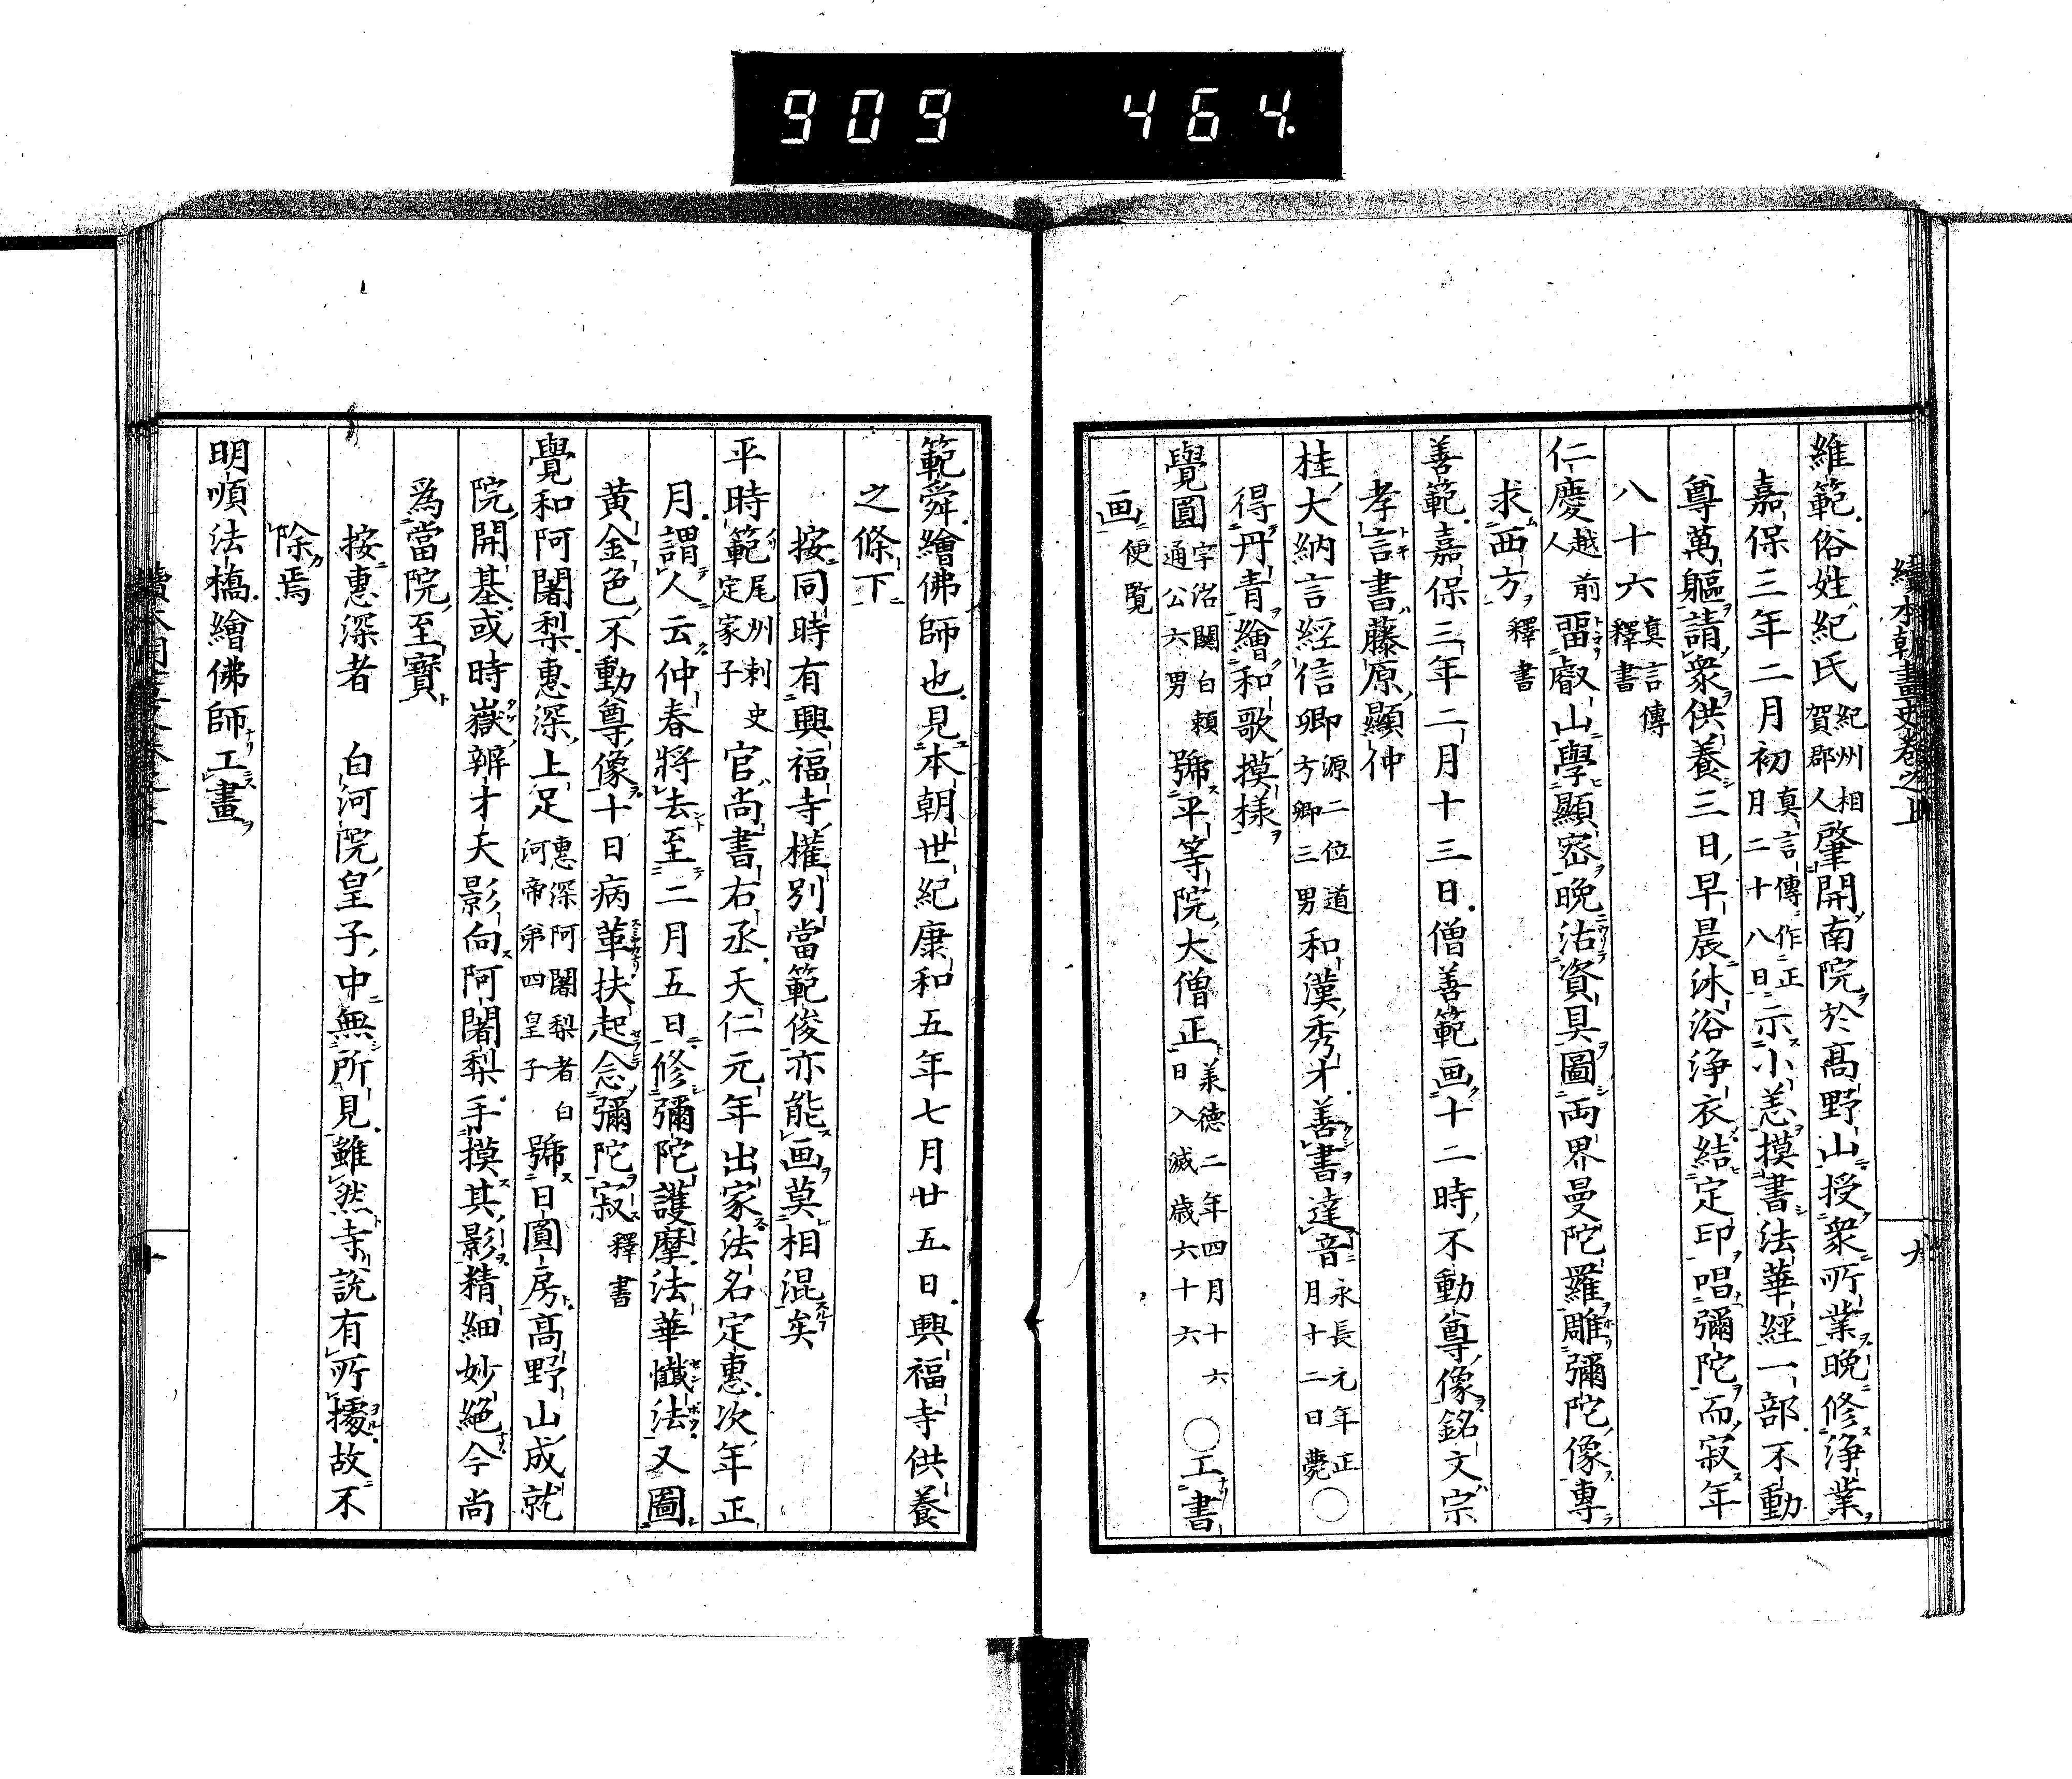 909 464.
續本朝畫史卷之上
九
維範俗姓紀氏紀州相賀郡人肇開南院於髙野山授衆所業晚修淨業
嘉保三年二月初真言傳作正月二十八日示小恙摸書法華經一部不動
尊萬軀請衆供養三日早晨沐浴淨衣結定印唱彌陀而寂年
八十六真言傳釋書
仁慶越前人畱叡山學顯密晚沽資具圖両界曼陀羅雕彌陀像專
求西方釋書
善範嘉保三年二月十三日僧善範画十二時不動尊像銘文宗
孝言書藤原顯仲
桂大納言經信卿源二位道方卿三男和漢秀才善書達音永長元年正月十二日薨〇
得丹青繪和歌摸様
覺圓字治關白頼通公六男號平等院大僧正羕德二年四月十六日入滅歳六十六〇工書
画便覧
範舜繪佛師也見本朝世紀康和五年七月廿五日興福寺供養
之條下
按同時有興福寺權別當範俊亦能画莫相混矣
平時範尾州刺史定家子官尚書右丞天仁元年出家法名定惠次年正
月謂人云仲春將去至二月五日修彌陀護摩法華懺法又圖
黄金色不動尊像十日病革扶起念彌陀寂釋書
覺和阿闍梨惠深上足惠深阿闍梨者白河帝第四皇子號日圓房髙野山成就
院開基或時嶽辨才天影向阿闍梨手摸其影精細妙絶今尚
為當院至寳
按惠深者 白河院皇子中無所見雖然寺説有所據故不
除焉
明順法橋繪佛師工畫
十